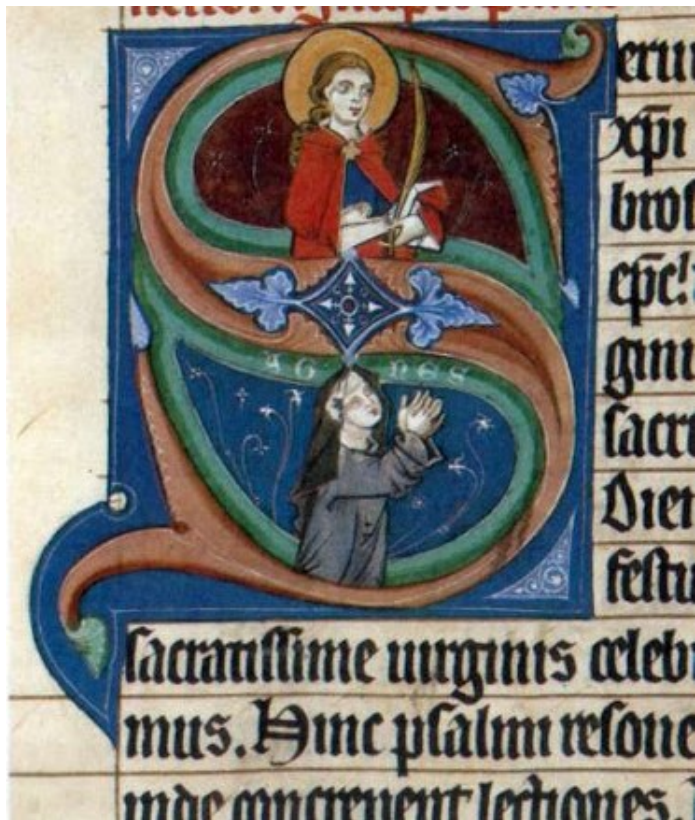 Serui
xp̄i
bros
AGNES
gini
sacr
Die
festu
sacratissime uirginis celeb
mus. Hinc psalmi resone
inde concrepent lectiones.